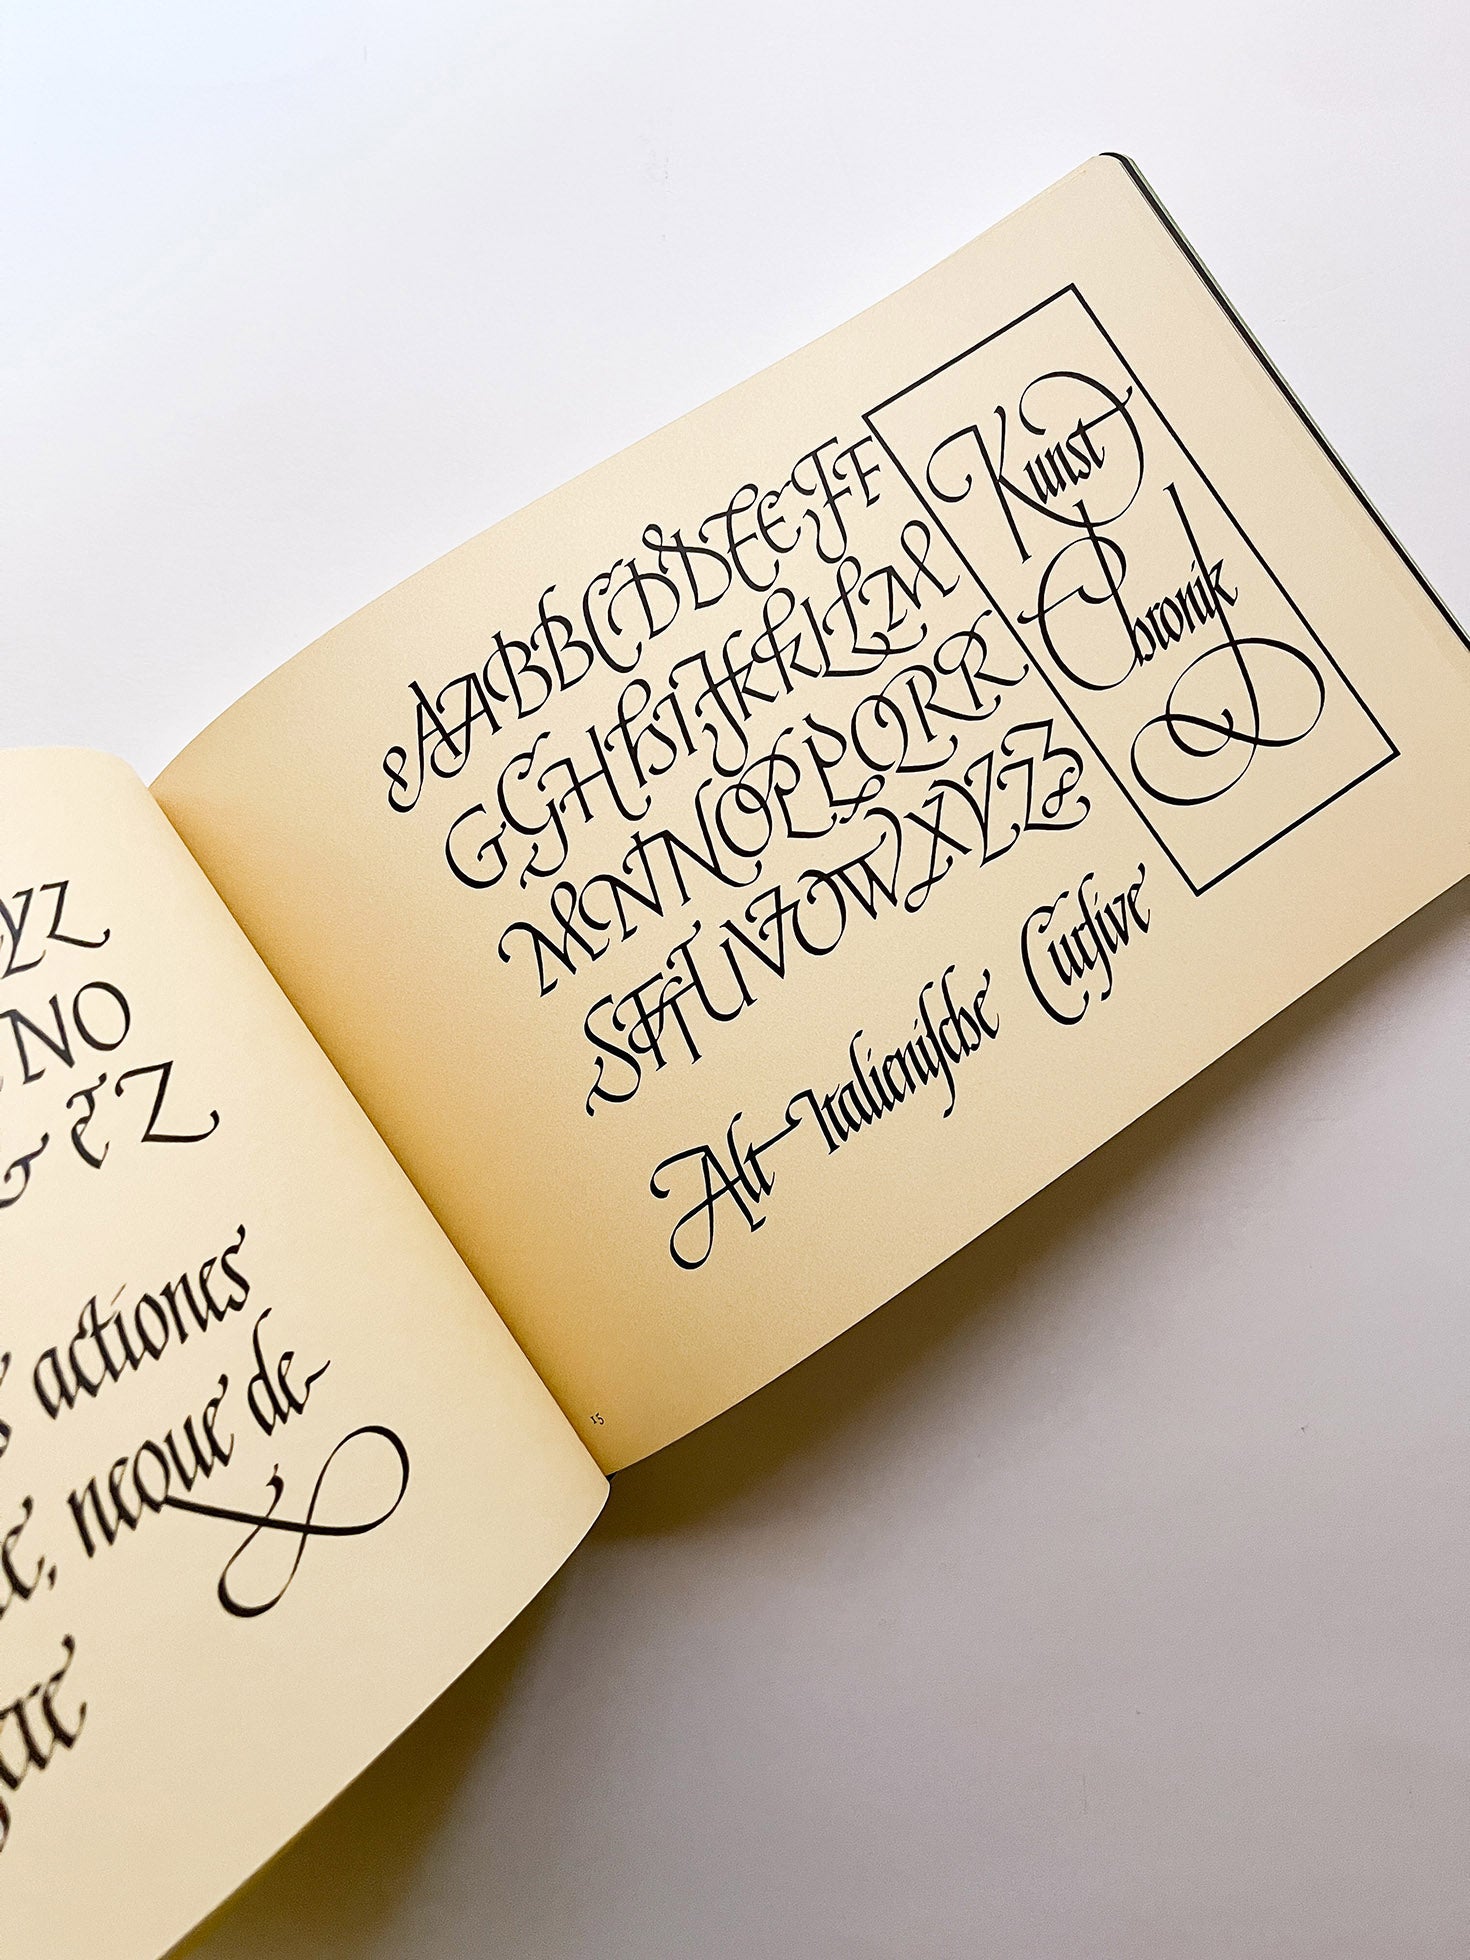 YZ
NO
Z
actiones
neque de-
AABBCDDEEFF
GGHHIJKKLLM
MNNOPPQRR
STTUVVWXYZZ
Alt-Italieniſche Curſive
Kunst
Chronik
15